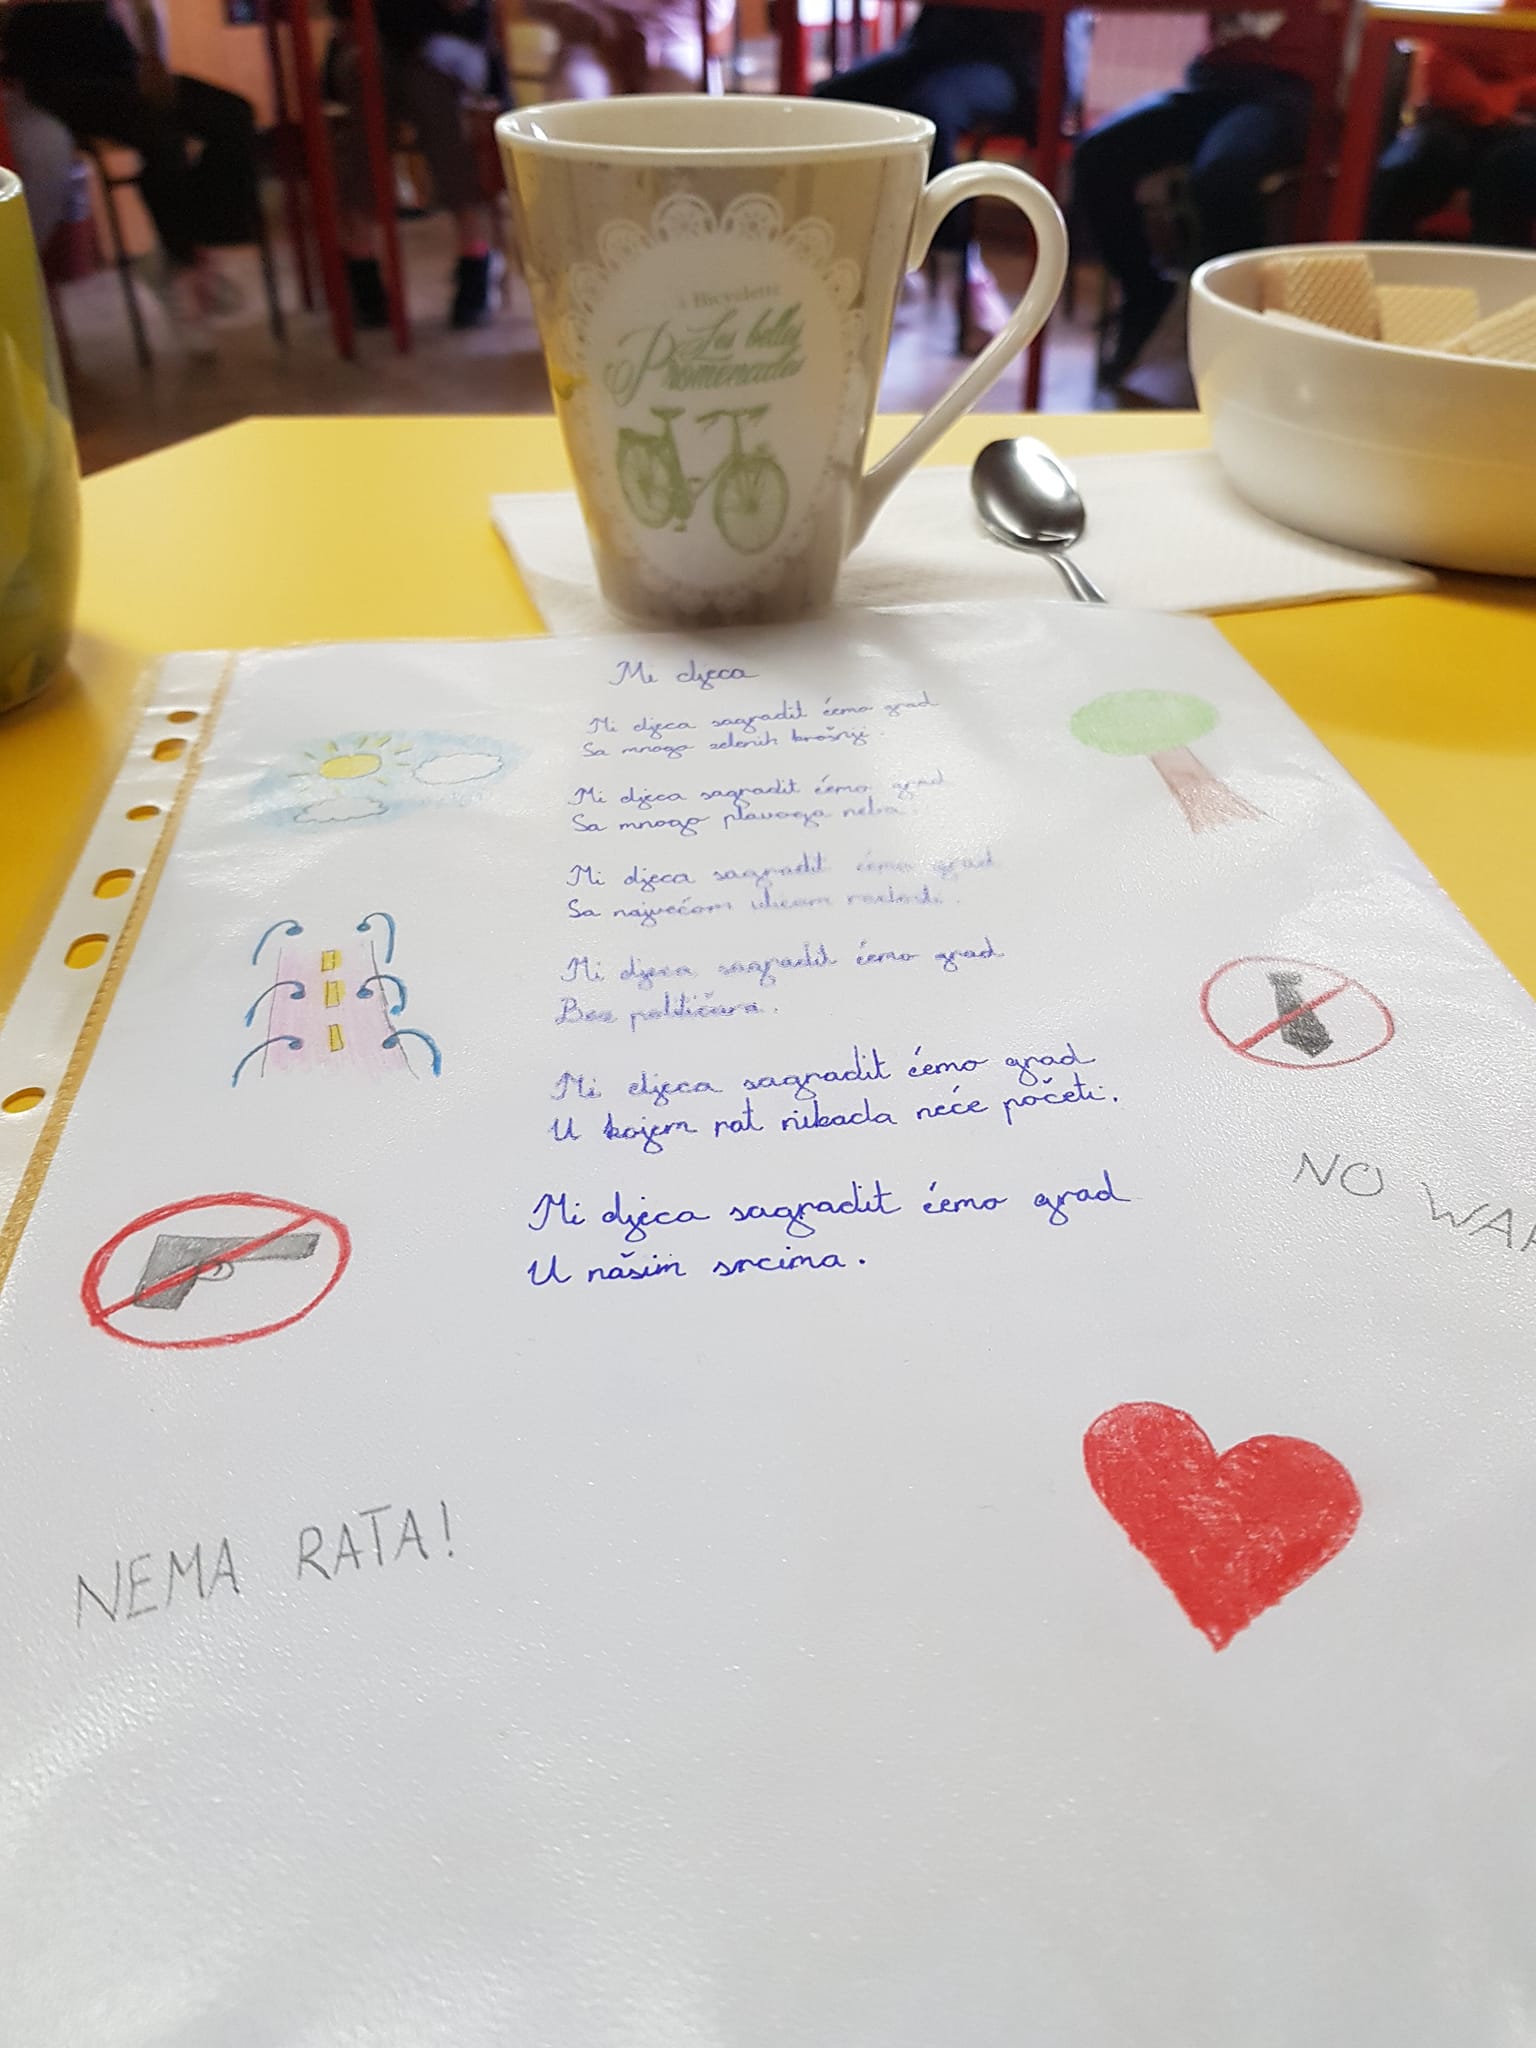 à Bicyclette
Les belles
Promenades
Mi djeca
Mi djeca sagradit ćemo grad
Sa mnogo zelenih krošnji.
Mi djeca sagradit ćemo grad
Sa mnogo plavoga neba.
Mi djeca sagradit ćemo grad
Sa najvećom ulicom radosti.
Mi djeca sagradit ćemo grad
Bez političara.
Mi djeca sagradit ćemo grad
U kojem rat nikada neće početi.
NO WAR
Mi djeca sagradit ćemo grad
U našim srcima.
NEMA RATA!